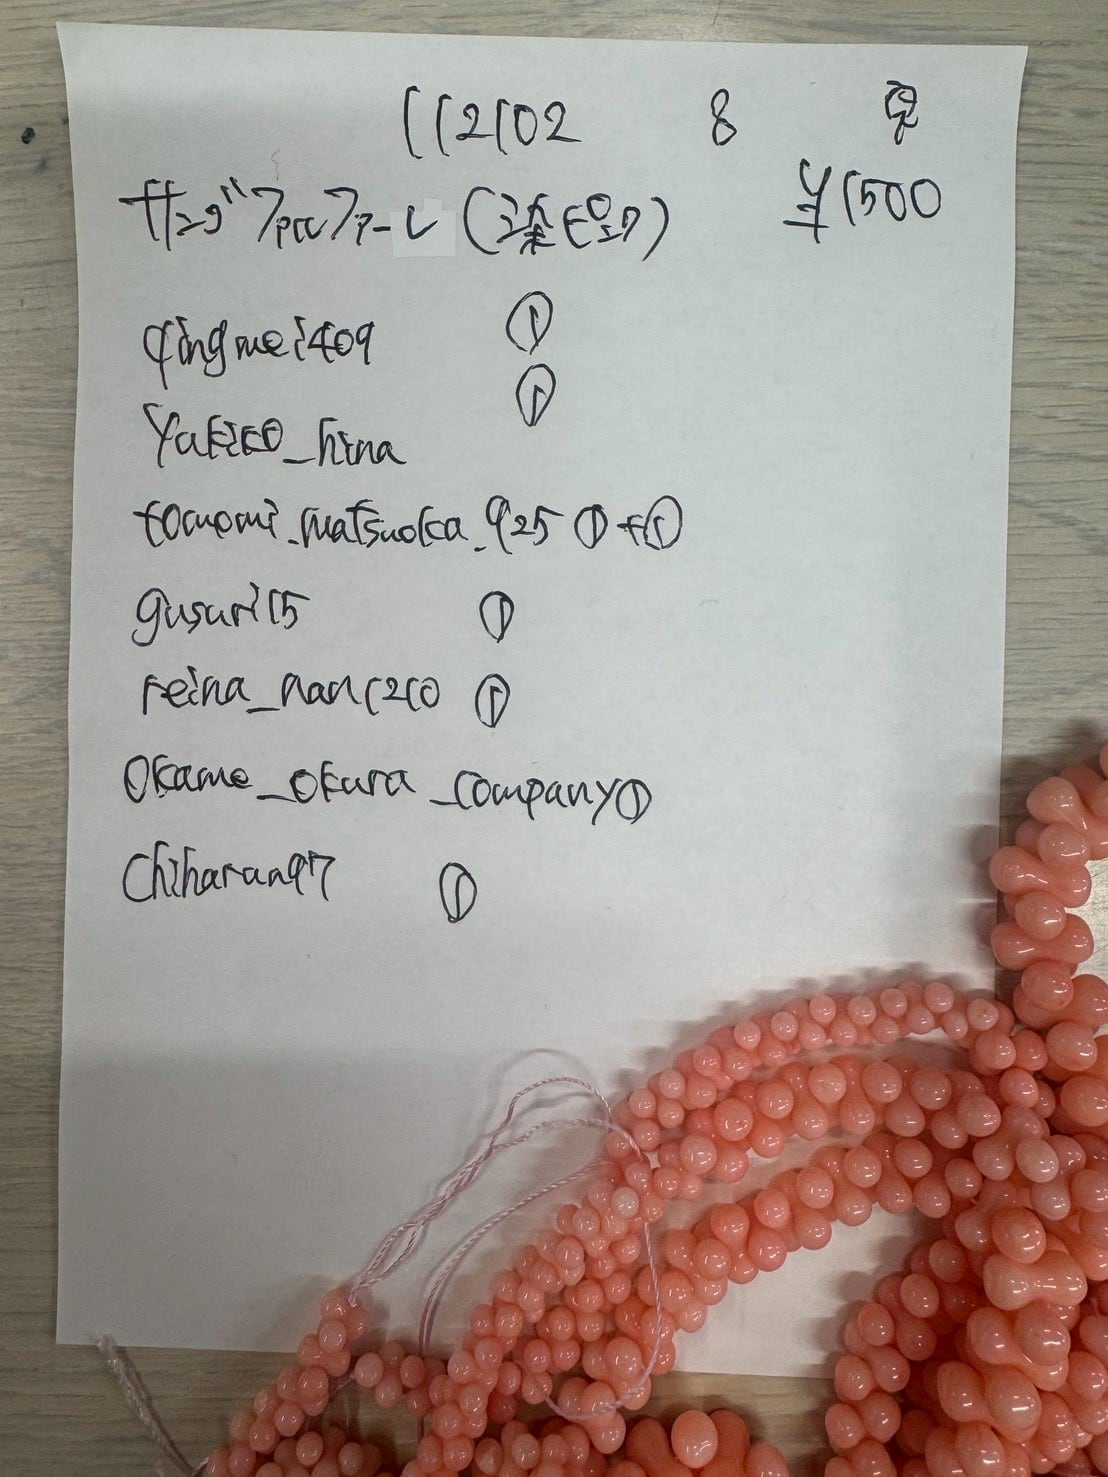 112102 8
¥1500
サンゴ (染ピンク)
qingmei409 ①
Yukico_hina ①
tomomi_matsuoka_925 ①+①
gusuri15 ①
reina_nan1210 ①
Okame_okura_company①
Chiharan97 ①